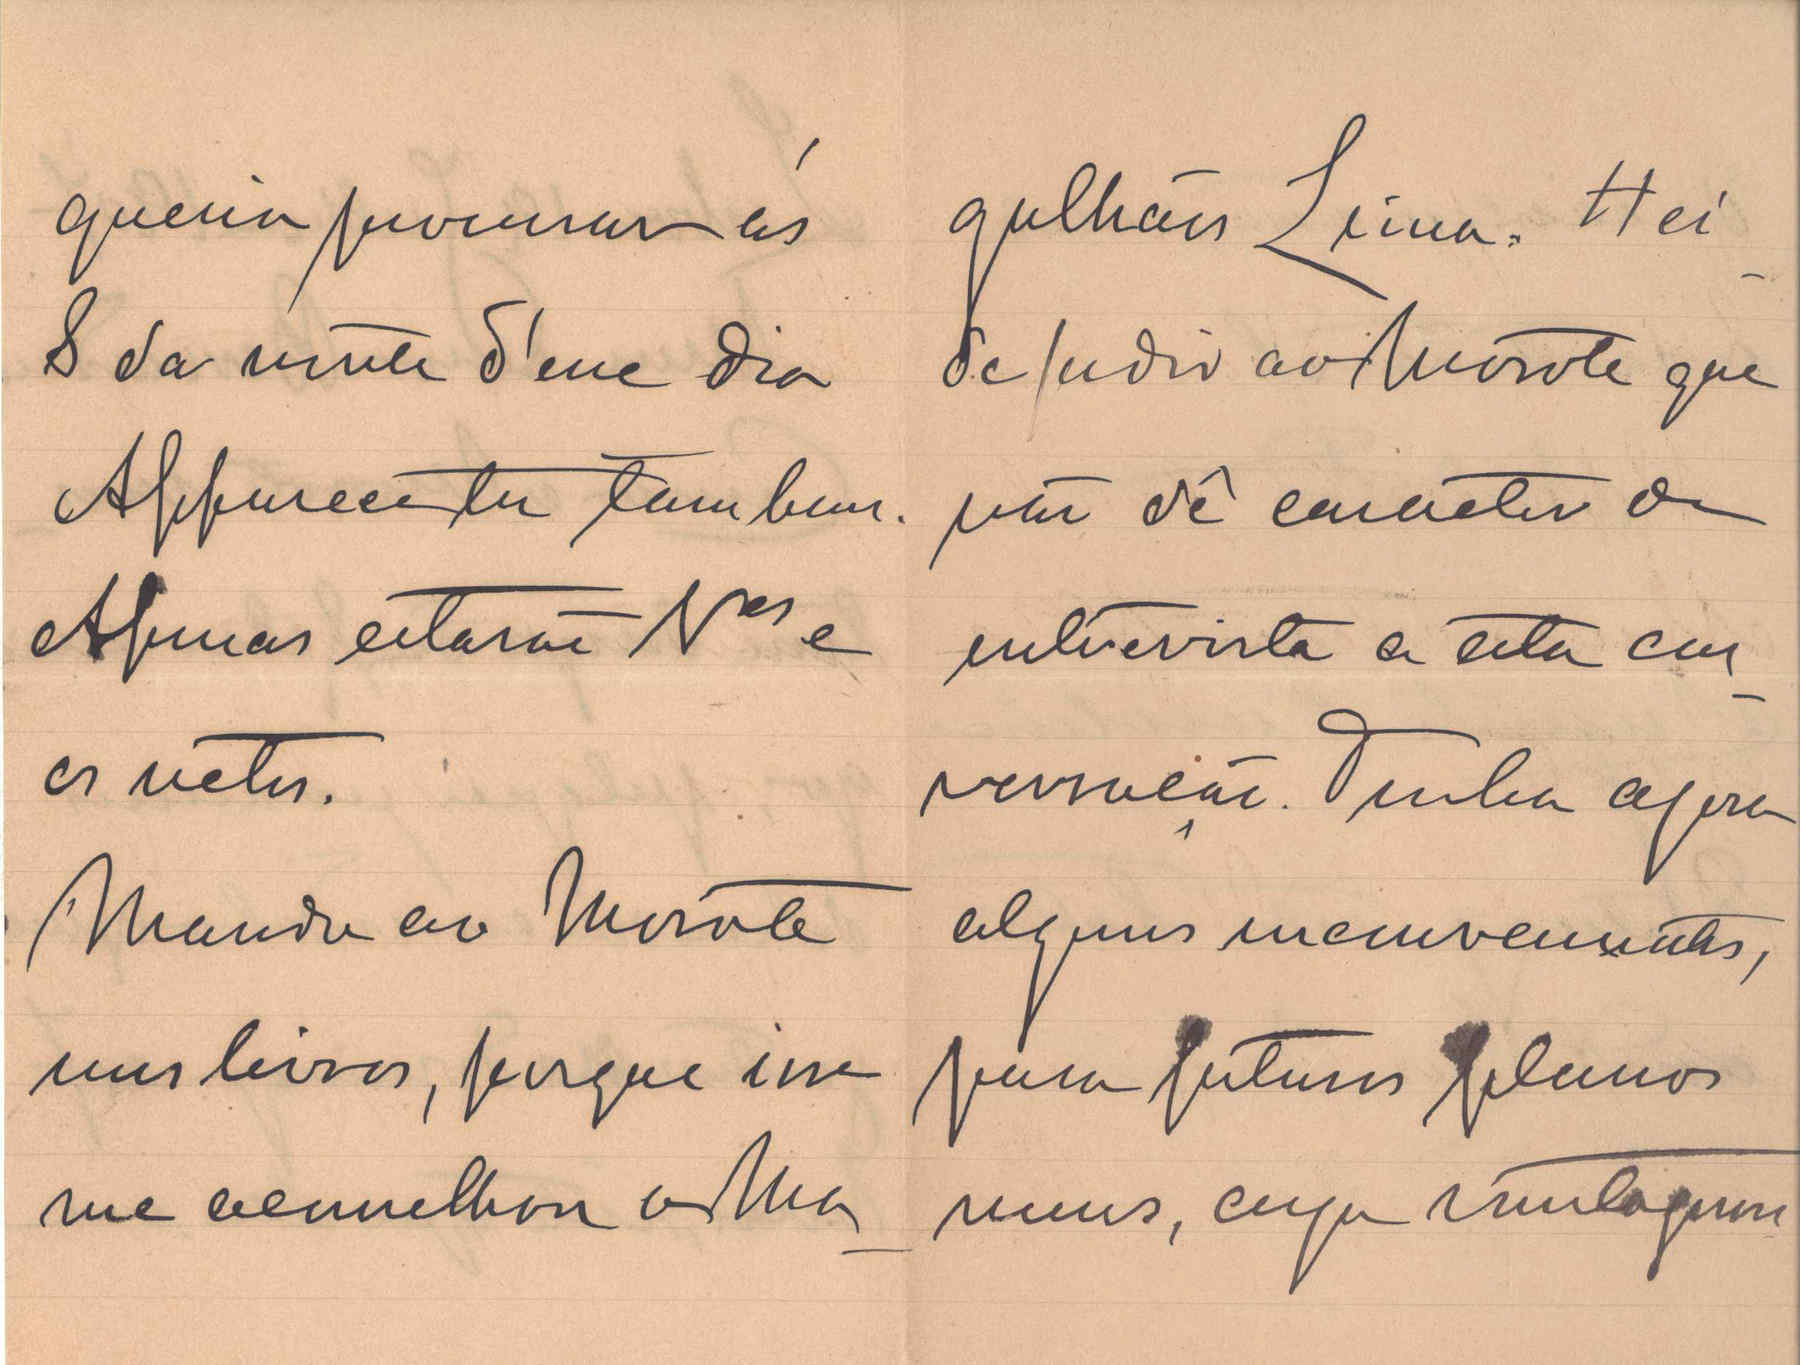 queria procurar ás
8 da noute d'esse dia
Appareceste tambem.
Apenas estarão V.as e
os netos.
Mando ao Morote
uns livros, porque isso
me aconselhou o Ma-
galhães Lima. Hei-
de pedir ao Morote que
não dê caracter de
entrevista a esta con-
versação. Tinha agora
alguns inconvenientes,
para futuros planos
meus, cuja vantagem